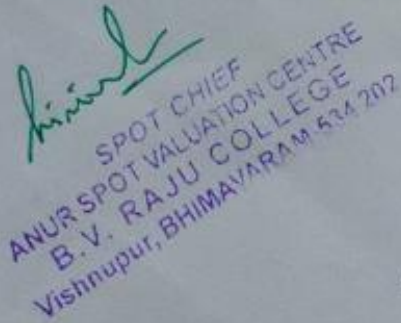 SPOT CHIEF
ANUR SPOT VALUATION CENTRE
B.V. RAJU COLLEGE
Vishnupur, BHIMAVARAM 534 202